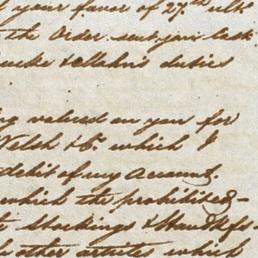 your favor of 27.th ult.
the Order sent you last
duties
valued on you for
Welsh & Co. which I
debit of my Account.
which the prohibited
Stockings & Handkfs
other articles which